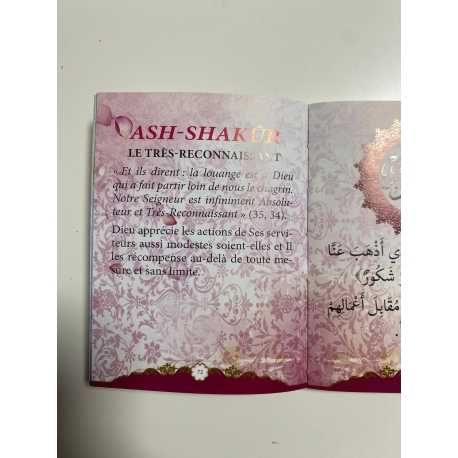 ASH-SHAKÛR
LE TRÈS-RECONNAISSANT
« Et ils dirent : la louange est à Dieu
qui a fait partir loin de nous le chagrin.
Notre Seigneur est infiniment Absolu-
teur et Très-Reconnaissant » (35, 34).
Dieu apprécie les actions de Ses servi-
teurs aussi modestes soient-elles et Il
les récompense au-delà de toute me-
sure et sans limite.
72
أَذْهَبَ عَنَّا
شَكُورٌ﴾
مُقَابِلَ أَعْمَالِهِمْ